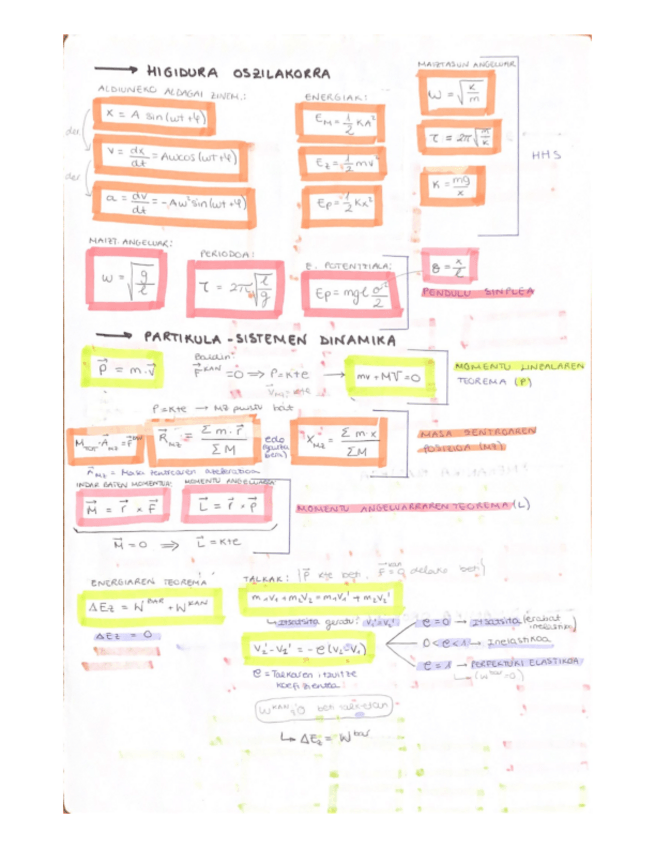 → HIGIDURA OSZILAKORRA
ALDIUNEKO ALDAGAI ZINEM.:
x = A sin(ωt+φ)
der.
v = dx/dt = Aωcos(ωt+φ)
der.
a = dv/dt = -Aω²sin(ωt+φ)
ENERGIAK:
E_M = 1/2 KA²
E_z = 1/2 mv²
E_p = 1/2 Kx²
MAIZTASUN ANGELUAR
ω = √(K/m)
τ = 2π√(m/K)
K = mg/x
HHS
MAIZT. ANGELUAR:
ω = √(g/l)
PERIODOA:
τ = 2π√(l/g)
E. POTENTZIALA:
Ep = mgl θ²/2
θ = x/l
PENDULU SINPLEA
→ PARTIKULA-SISTEMEN DINAMIKA
p⃗ = m·v⃗
Baldin:
F⃗^KAN = 0 ⇒ P = Kte →
mv + MV = 0
MOMENTU LINEALAREN
TEOREMA (P)
P = Kte → MZ puntu bat
R⃗_MZ = Σm·r⃗ / ΣM
edo
X_MZ = Σm·x / ΣM
MASA ZENTROAREN
POSIZIOA (MZ)
a⃗_MZ = Masa zentroaren azelerazioa
INDAR BATEN MOMENTUA
M⃗ = r⃗ × F⃗
MOMENTU ANGELUARRA
L⃗ = r⃗ × p⃗
MOMENTU ANGELUARRAREN TEOREMA (L)
M⃗ = 0 ⇒ L⃗ = Kte
ENERGIAREN TEOREMA
ΔEz = W^BAR + W^KAN
ΔEz = 0
TALKAK: P⃗ kte beti, F⃗^KAN = 0 delako beti
m₁v₁ + m₂v₂ = m₁v₁' + m₂v₂'
↳ Itsatsita geratu: v₁' = v₂'
v₂' - v₁' = -e(v₂ - v₁)
e = 0 → Itsatsita (erabat inelastikoa)
0 < e < 1 → Inelastikoa
e = 1 → PERFEKTUKI ELASTIKOA
↳ (W^bar = 0)
e = Talkaren itzultze
koefizientea
W^KAN = 0 beti talketan
↳ ΔEz = W^bar